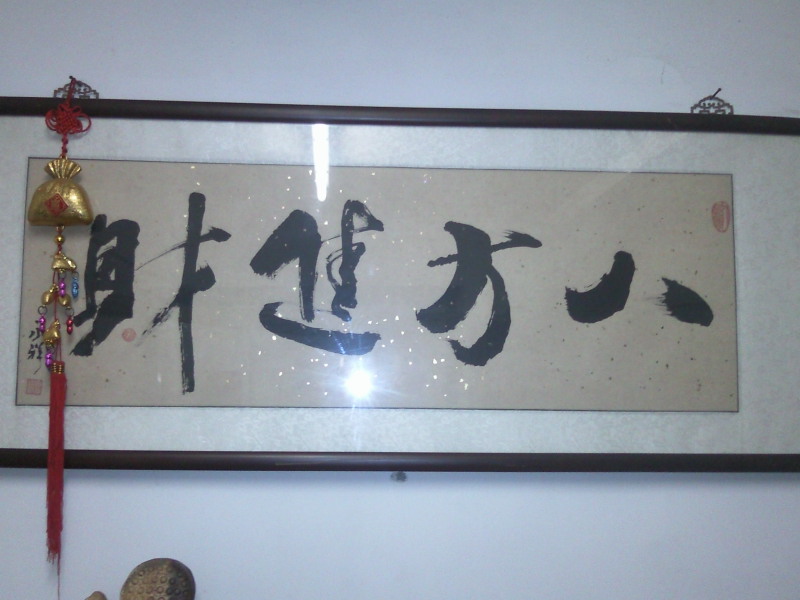 八方進財